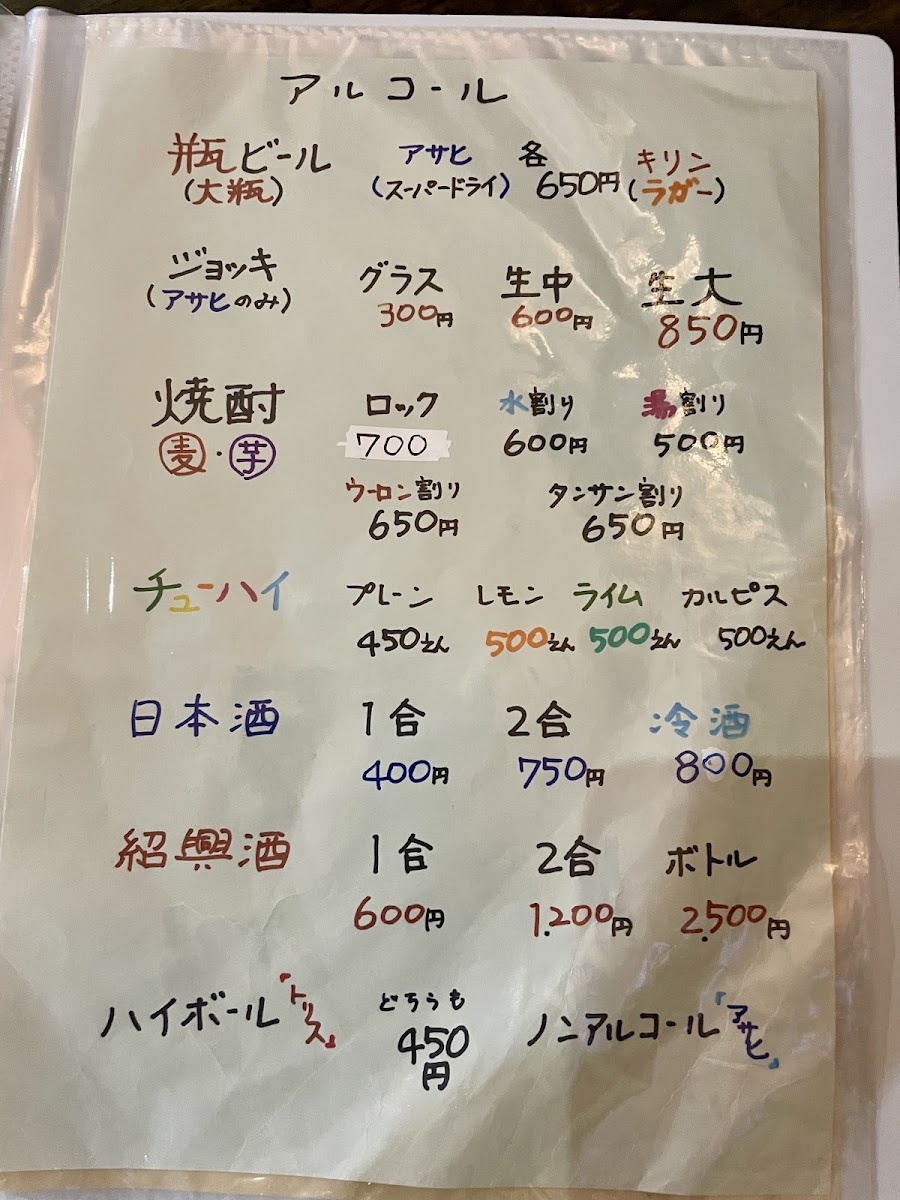 アルコール
瓶ビール アサヒ 各 キリン
(大瓶) (スーパードライ) 650円 (ラガー)
ジョッキ グラス 生中 生大
(アサヒのみ) 300円 600円 850円
焼酎 ロック 水割り 湯割り
麦・芋 700 600円 500円
ウーロン割り タンサン割り
650円 650円
チューハイ プレーン レモン ライム カルピス
450えん 500えん 500えん 500えん
日本酒 1合 2合 冷酒
400円 750円 800円
紹興酒 1合 2合 ボトル
600円 1.200円 2.500円
ハイボール『トリス』 どちらも ノンアルコール『アサヒ』
450
円